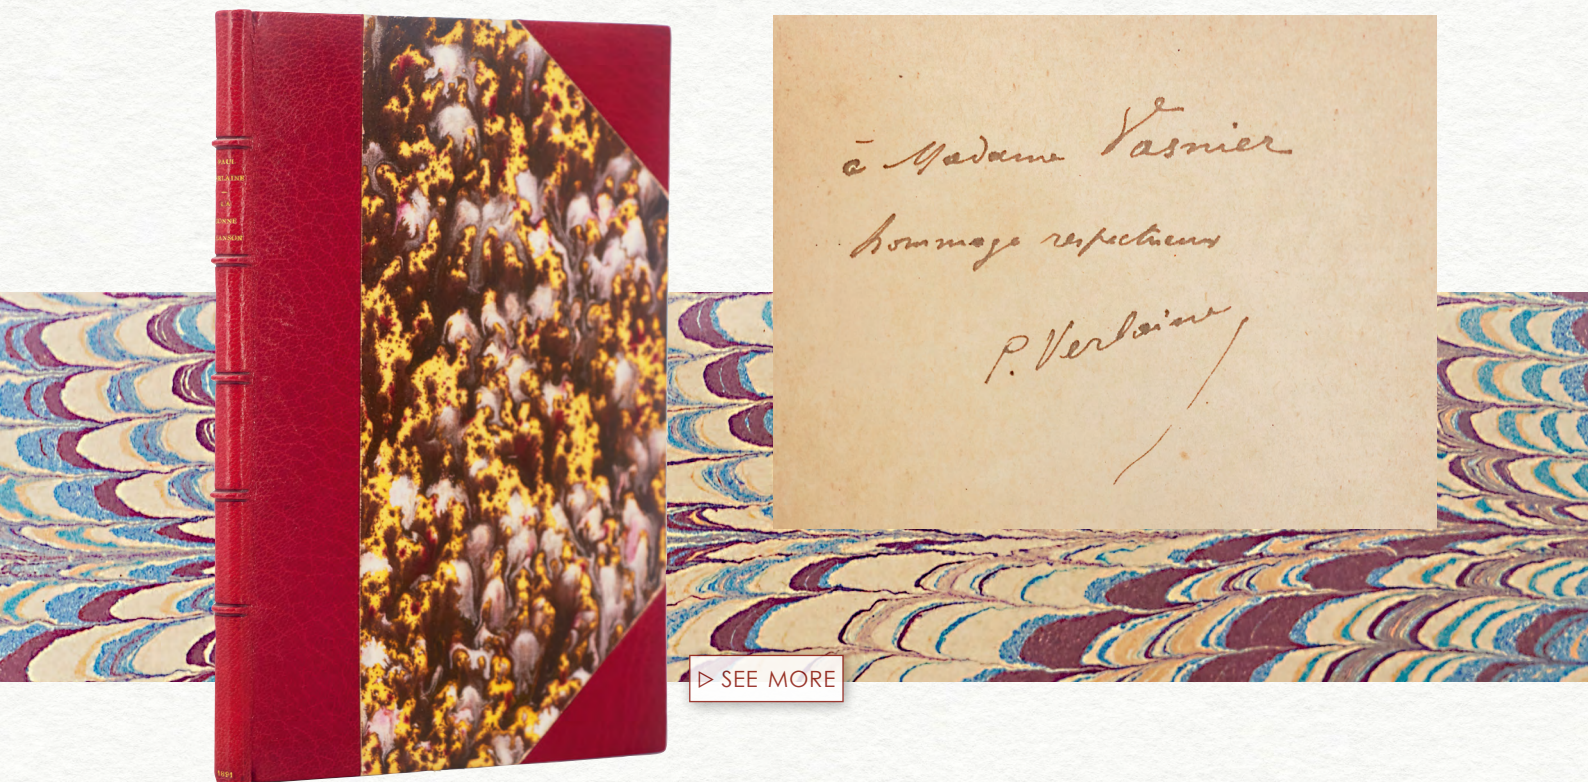 PAUL
VERLAINE
LA
BONNE
CHANSON
1891
à Madame Vasnier
hommage respectueux
P. Verlaine
SEE MORE